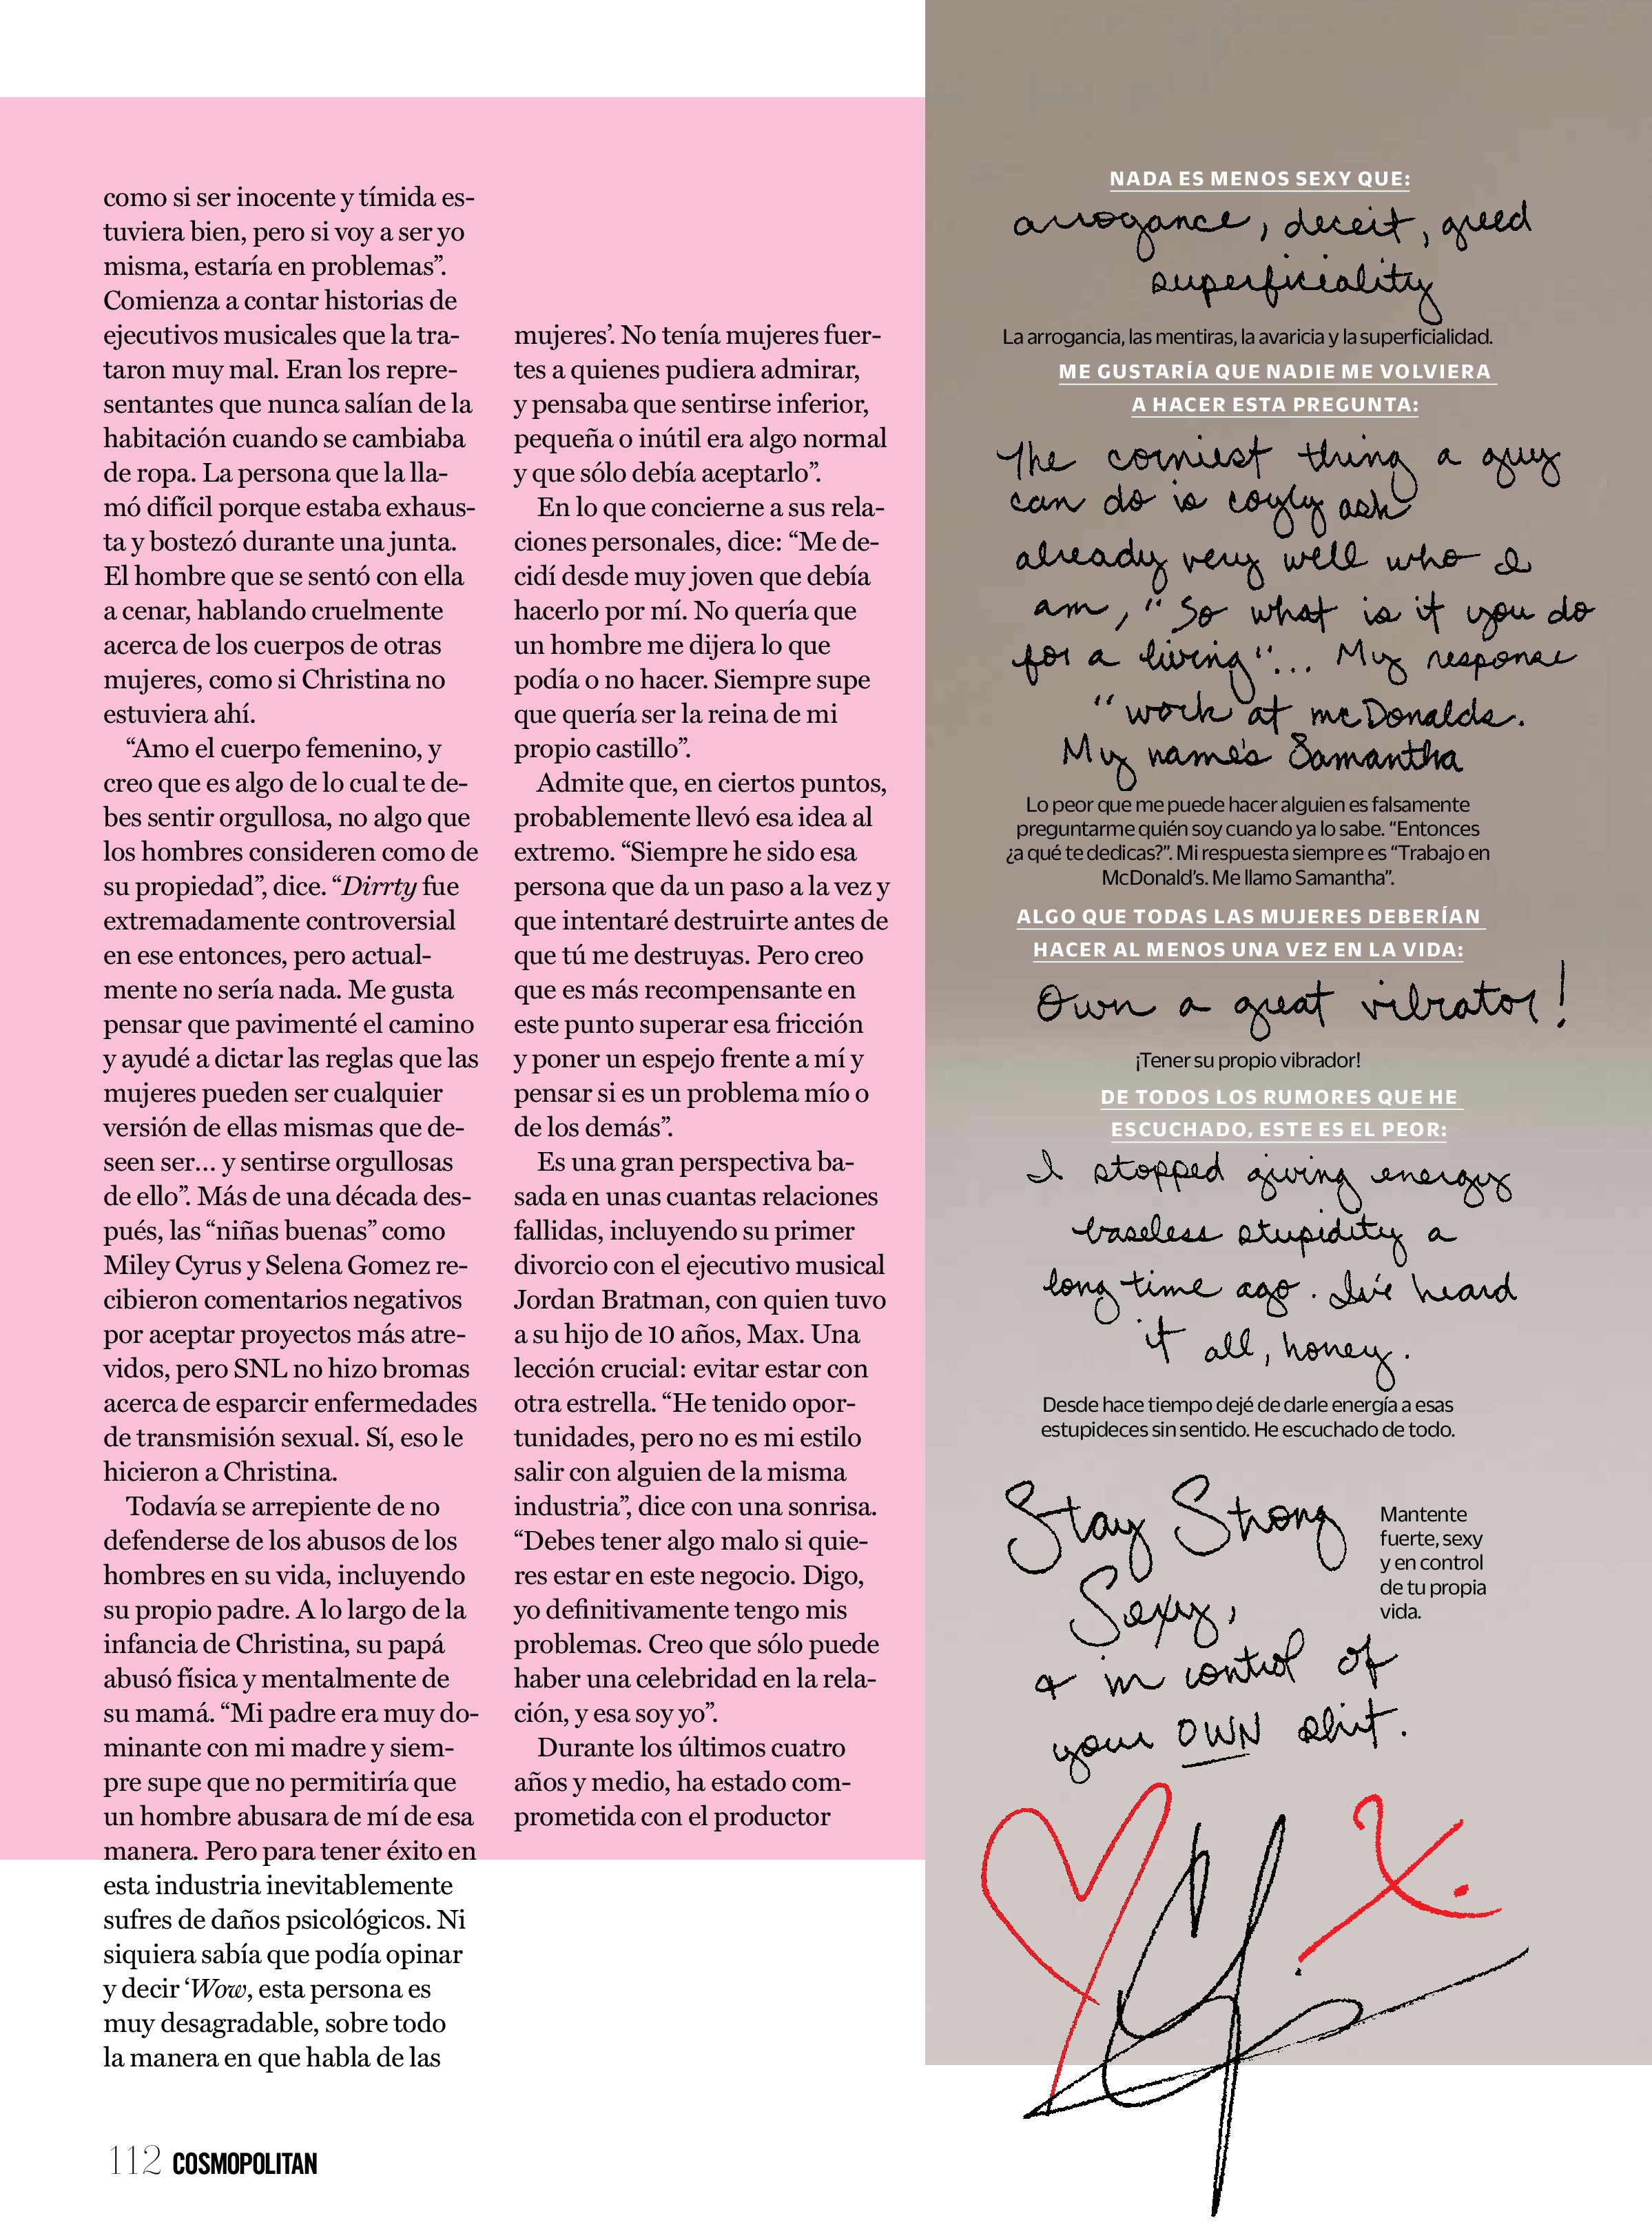 como si ser inocente y tímida es-
tuviera bien, pero si voy a ser yo
misma, estaría en problemas”.
Comienza a contar historias de
ejecutivos musicales que la tra-
taron muy mal. Eran los repre-
sentantes que nunca salían de la
habitación cuando se cambiaba
de ropa. La persona que la lla-
mó difícil porque estaba exhaus-
ta y bostezó durante una junta.
El hombre que se sentó con ella
a cenar, hablando cruelmente
acerca de los cuerpos de otras
mujeres, como si Christina no
estuviera ahí.
“Amo el cuerpo femenino, y
creo que es algo de lo cual te de-
bes sentir orgullosa, no algo que
los hombres consideren como de
su propiedad”, dice. “Dirrty fue
extremadamente controversial
en ese entonces, pero actual-
mente no sería nada. Me gusta
pensar que pavimenté el camino
y ayudé a dictar las reglas que las
mujeres pueden ser cualquier
versión de ellas mismas que de-
seen ser... y sentirse orgullosas
de ello”. Más de una década des-
pués, las “niñas buenas” como
Miley Cyrus y Selena Gomez re-
cibieron comentarios negativos
por aceptar proyectos más atre-
vidos, pero SNL no hizo bromas
acerca de esparcir enfermedades
de transmisión sexual. Sí, eso le
hicieron a Christina.
Todavía se arrepiente de no
defenderse de los abusos de los
hombres en su vida, incluyendo
su propio padre. A lo largo de la
infancia de Christina, su papá
abusó física y mentalmente de
su mamá. “Mi padre era muy do-
minante con mi madre y siem-
pre supe que no permitiría que
un hombre abusara de mí de esa
manera. Pero para tener éxito en
esta industria inevitablemente
sufres de daños psicológicos. Ni
siquiera sabía que podía opinar
y decir ‘Wow, esta persona es
muy desagradable, sobre todo
la manera en que habla de las
mujeres’. No tenía mujeres fuer-
tes a quienes pudiera admirar,
y pensaba que sentirse inferior,
pequeña o inútil era algo normal
y que sólo debía aceptarlo”.
En lo que concierne a sus rela-
ciones personales, dice: “Me de-
cidí desde muy joven que debía
hacerlo por mí. No quería que
un hombre me dijera lo que
podía o no hacer. Siempre supe
que quería ser la reina de mi
propio castillo”.
Admite que, en ciertos puntos,
probablemente llevó esa idea al
extremo. “Siempre he sido esa
persona que da un paso a la vez y
que intentaré destruirte antes de
que tú me destruyas. Pero creo
que es más recompensante en
este punto superar esa fricción
y poner un espejo frente a mí y
pensar si es un problema mío o
de los demás”.
Es una gran perspectiva ba-
sada en unas cuantas relaciones
fallidas, incluyendo su primer
divorcio con el ejecutivo musical
Jordan Bratman, con quien tuvo
a su hijo de 10 años, Max. Una
lección crucial: evitar estar con
otra estrella. “He tenido opor-
tunidades, pero no es mi estilo
salir con alguien de la misma
industria”, dice con una sonrisa.
“Debes tener algo malo si quie-
res estar en este negocio. Digo,
yo definitivamente tengo mis
problemas. Creo que sólo puede
haber una celebridad en la rela-
ción, y esa soy yo”.
Durante los últimos cuatro
años y medio, ha estado com-
prometida con el productor
NADA ES MENOS SEXY QUE:
arrogance, deceit, greed
superficiality
La arrogancia, las mentiras, la avaricia y la superficialidad.
ME GUSTARÍA QUE NADIE ME VOLVIERA
A HACER ESTA PREGUNTA:
The corniest thing a guy
can do is coyly ask
already very well who I
am, “So what is it you do
for a living”... My response
“work at mcDonalds.
My name's Samantha
Lo peor que me puede hacer alguien es falsamente
preguntarme quién soy cuando ya lo sabe. “Entonces
¿a qué te dedicas?”. Mi respuesta siempre es “Trabajo en
McDonald’s. Me llamo Samantha”.
ALGO QUE TODAS LAS MUJERES DEBERÍAN
HACER AL MENOS UNA VEZ EN LA VIDA:
Own a great vibrator!
¡Tener su propio vibrador!
DE TODOS LOS RUMORES QUE HE
ESCUCHADO, ESTE ES EL PEOR:
I stopped giving energy
baseless stupidity a
long time ago. I've heard
it all, honey.
Desde hace tiempo dejé de darle energía a esas
estupideces sin sentido. He escuchado de todo.
Stay Strong
Sexy,
& in control of
your OWN shit.
Mantente
fuerte, sexy
y en control
de tu propia
vida.
X.
112 COSMOPOLITAN